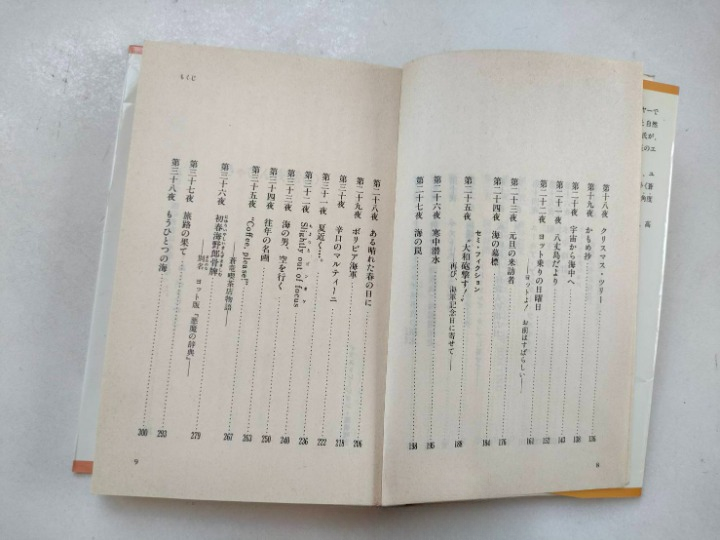 ヤーで
と自然
氏が、
のエ
ユ
(蒼
角度
高
第十八夜 クリスマス・ツリー
第十九夜 かもめ抄
第二十夜 宇宙から海中へ 143
第二十一夜 八丈島だより 152
第二十二夜 ヨット乗りの日曜日 161
第二十三夜 元旦の来訪者 176
――ヨットよ! お前はすばらしい――
第二十四夜 海の墓標 184
第二十五夜 "大和砲撃す!" 188
セミ・フィクション
――再び、海軍記念日に寄せて――
第二十六夜 寒中潜水 195
第二十七夜 海の罠 198
8
もくじ
第二十八夜 ある晴れた春の日に 206
第二十九夜 ボリビア海軍 218
第三十夜 辛口のマルティーニ 222
第三十一夜 夏近く…。 236
第三十二夜 Slightly out of focus 240
第三十三夜 海の男、空を行く 250
第三十四夜 往年の名画 263
第三十五夜 "Coffee, please!" 267
――蒼竜喫茶店物語――
第三十六夜 初春海野郎骨牌 279
第三十七夜 旅路の果て 293
――別名 ヨット版『悪魔の辞典』――
第三十八夜 もうひとつの海 300
9